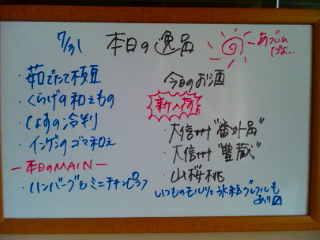 7/31 本日の逸品
あづいね
茹でたて枝豆
・くらげの和えもの
・しょうすの冷製
・インゲンのゴマ和え
―本日のMAIN―
・ハンバーグとミニチキンピラフ
今日のお酒
新入荷
・大信州"番外品"
・大信州"豊蔵"
・山桜桃
いつものモルツ、氷結グレフルも
あり〼